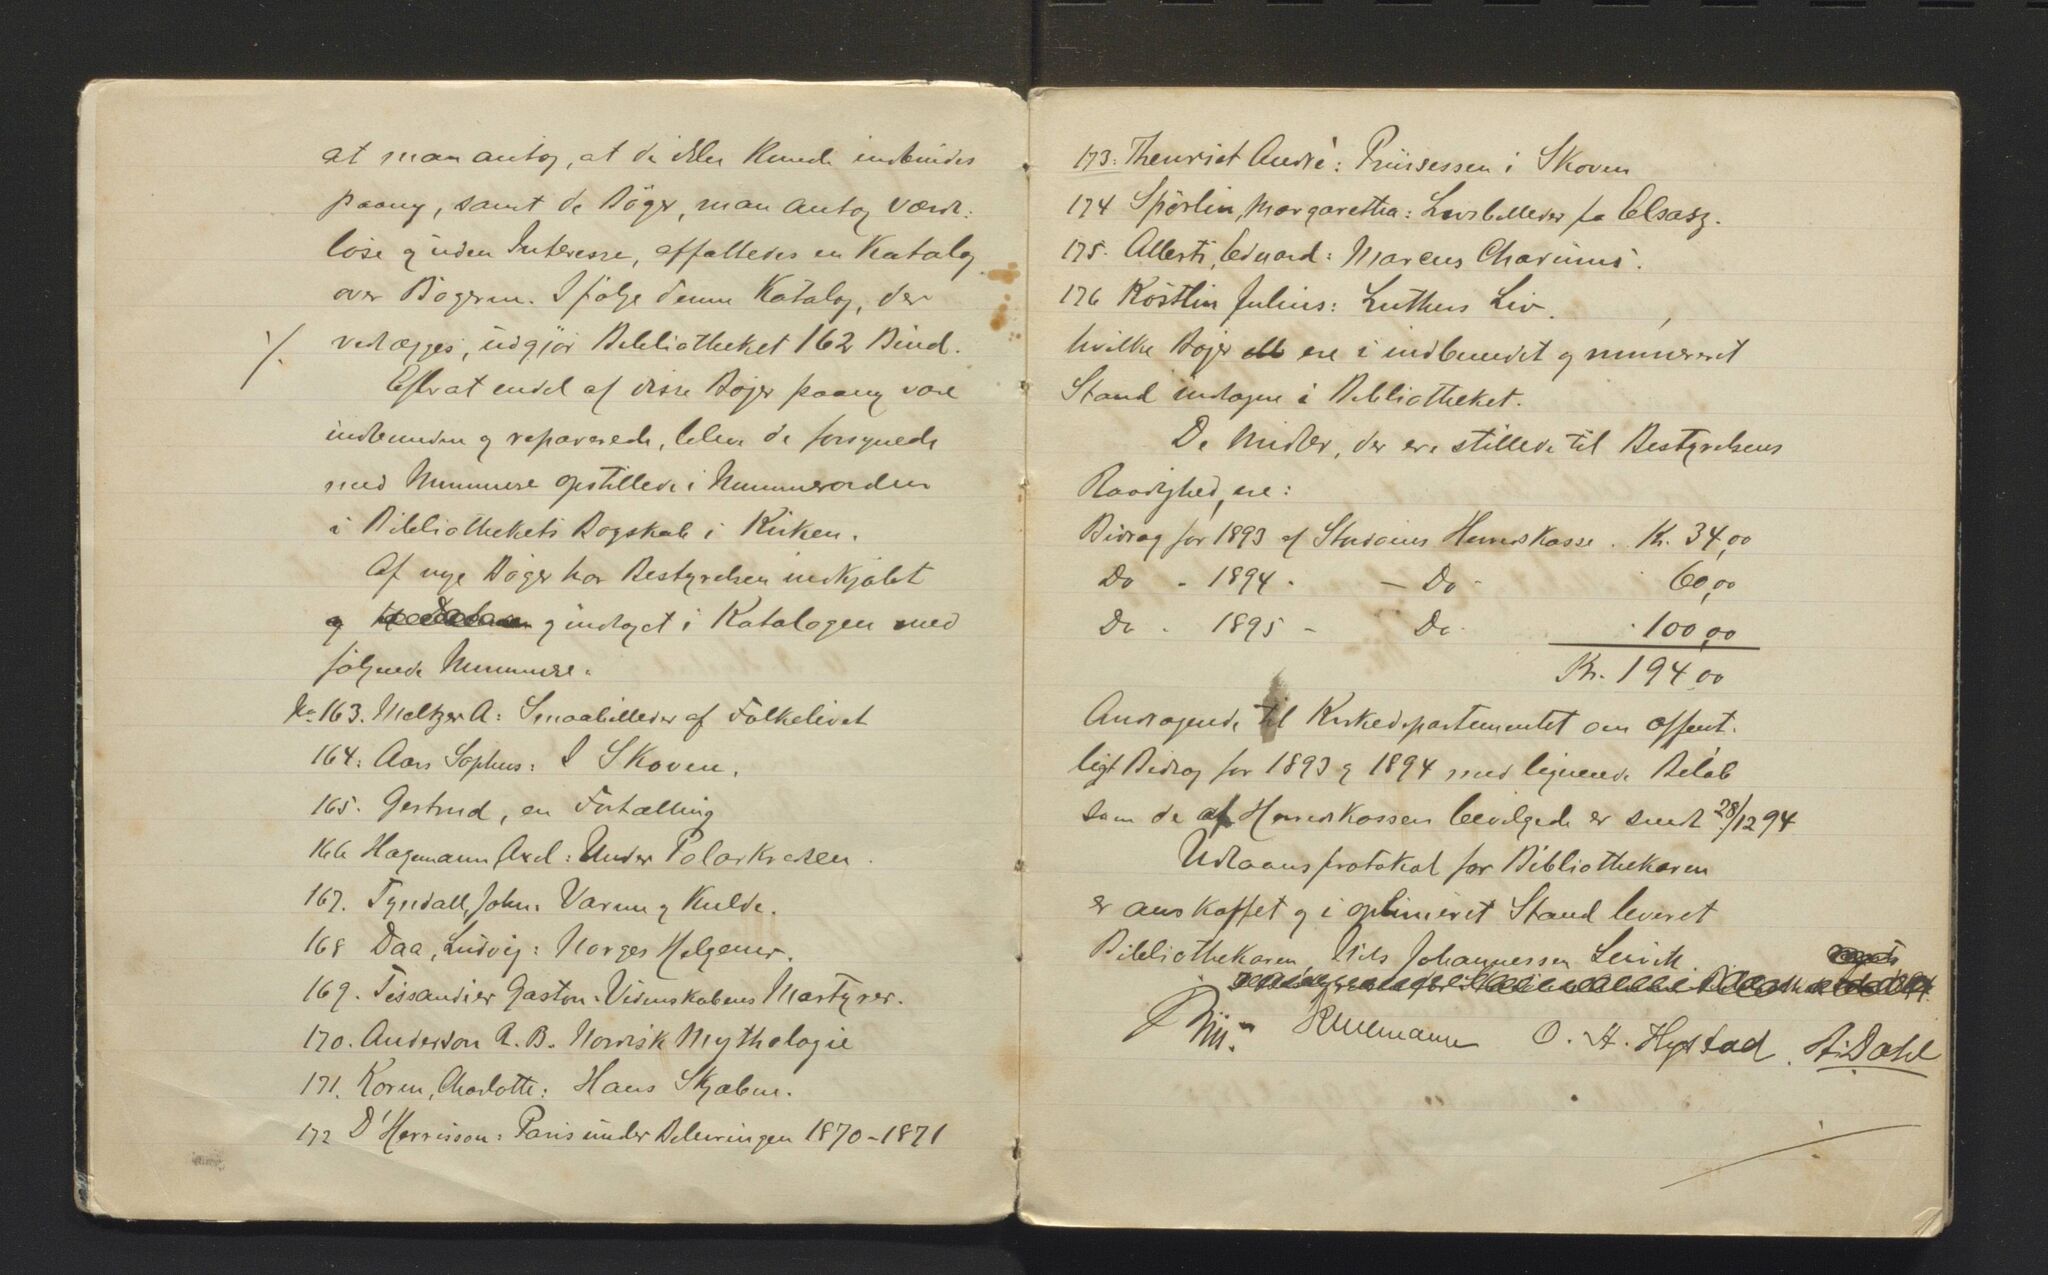 at man antog, at de ikke kunde indbindes
paany, samt de Bøger, man antog værd:
løse og uden Interesse, affattedes en Katalog
over Bøgerne. Ifølge denne Katalog, der
./. vedlægges, udgjør Bibliotheket 162 Bind.
Efterat endel af disse Bøger paany vare
indbundne og reparerede, bleve de forsynede
med Nummere opstillede i Nummerorden
i Bibliothekets Bogskab i Kirken.
Af nye Bøger har Bestyrelsen indkjøbt
og og indtaget i Katalogen med
følgende Nummere.
No 163. Meltzer A: Smaabilleder af Folkelivet
164: Aars Sophus: I Skoven.
165. Gertrud, en Fortælling
166 Hagemann Axel: Under Polarkredsen.
167. Tyndall, John: Varme og Kulde.
168 Daa, Ludvig: Norges Helgener.
169. Tissandier Gaston: Videnskabens Martyrer.
170. Anderson R. B. Norrisk Mythologie
171. Koren, Charlotte: Hans Skjæbne.
172 D'Herrisson: Paris under Beleiringen 1870-1871
173: Theuriet André: Prinsessen i Skoven
174 Spörlin, Margaretha: Livsbilleder fra Elsasz.
175. Alberti, Eduard: Marcus Charinus.
176 Köstlin Julius: Luthers Liv.
hvilke Bøger ere i indbundet og numereret
Stand indtagne i Bibliotheket.
De Midler, der ere stillede til Bestyrelsens
Raadighed, ere:
Bidrag for 1893 af Stordøens Herredskasse . Kr. 34,00
Do - 1894 - - Do - 60,00
Do - 1895 - Do - 100,00
Kr. 194,00
Andragende til Kirkedepartementet om offent-
ligt Bidrag for 1893 og 1894 med lignende Beløb
som de af Herredskassen bevilgede er sendt 28/12 94
Udlaansprotokol for Bibliothekaren
er anskaffet og i oplinieret Stand leveret
Bibliothekaren Nils Johannessen Lervik.
O. H. Hystad. A. Dahl